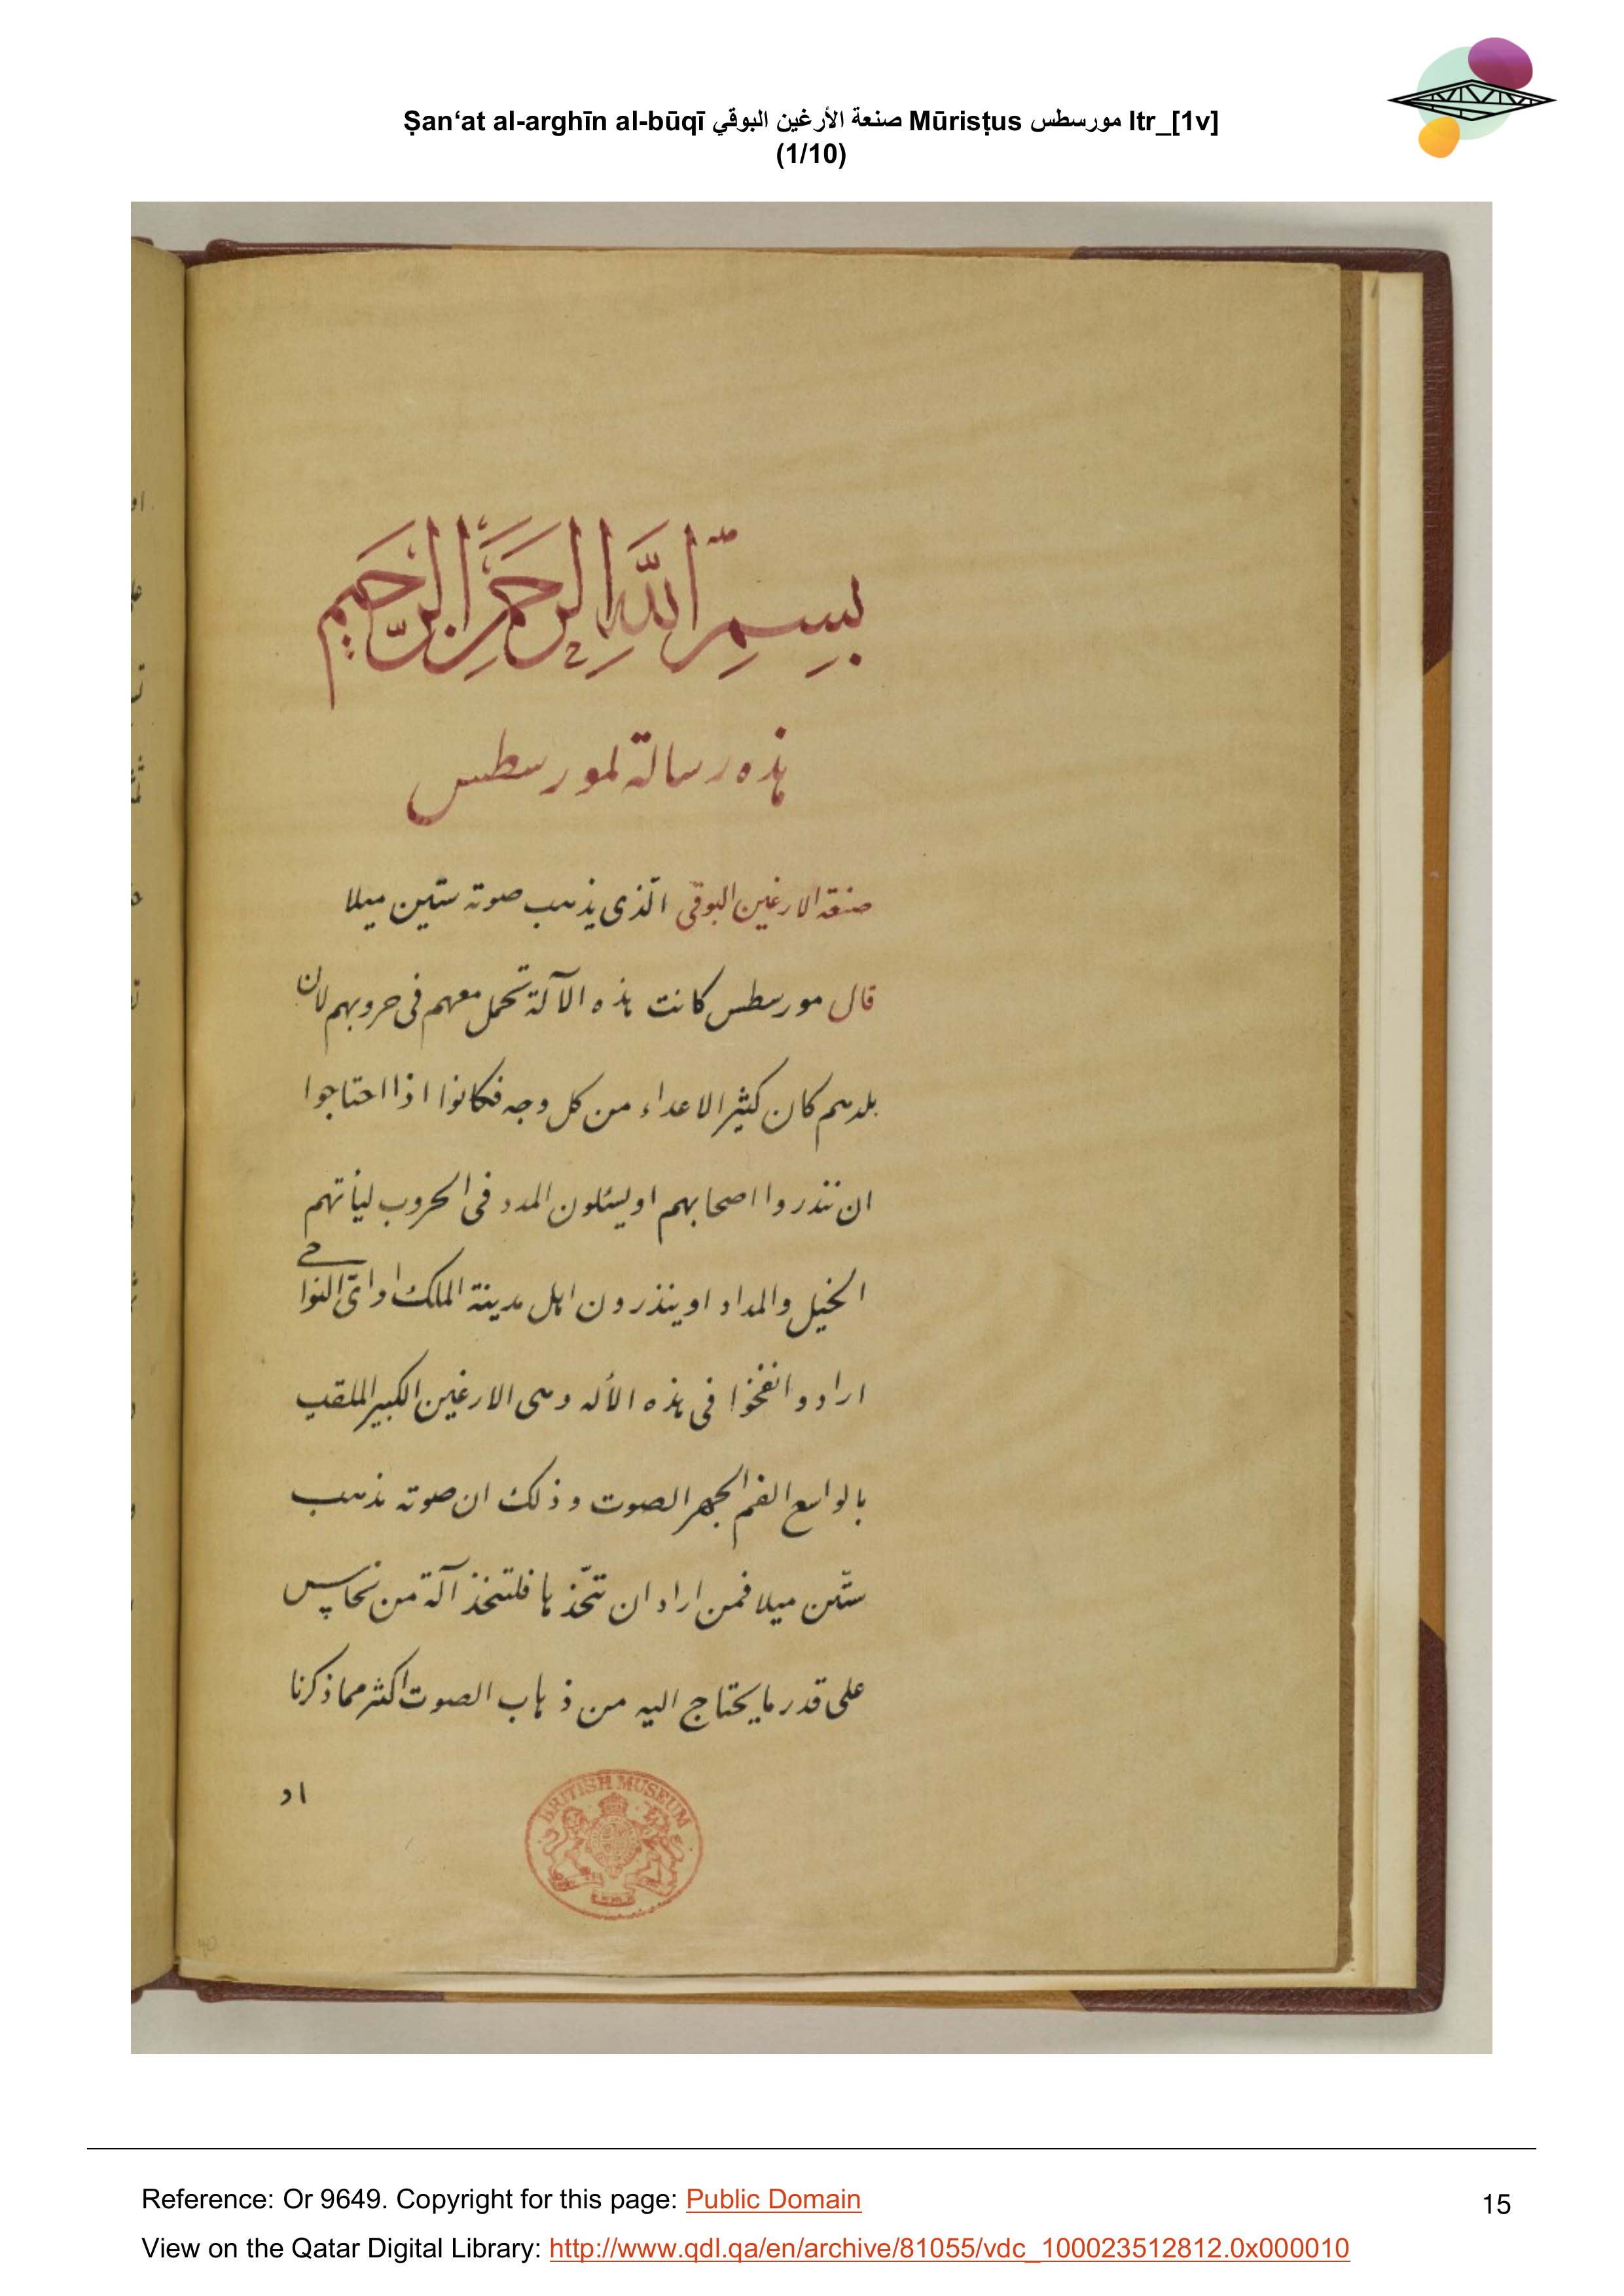 Ṣan‘at al-arghīn al-būqī صنعة الأرغين البوقي Mūrisṭus مورسطس ltr_[1v]
(1/10)
بِسِمِ اللَّهِ الرَّحمَنِ الرَّحَيِم
هذه رسالة لمورسطس
صنعة الارغين البوقى الّذى يذهب صوته ستين ميلا
قال مورسطس كانت هذه الآلة تحمل معهم فى حروبهم لان
بلدهم كان كثير الاعداء من كل وجه فكانوا اذا احتاجوا
ان ننذروا اصحابهم او يسئلون المدد فى الحروب ليأتهم
الخيل والمداد او ينذرون اهل مدينة الملك او اىّ النواحى
ارادوا نفخوا فى هذه الأله وهى الارغين الكبير الملقب
بالواسع الفم الجهير الصوت وذلك ان صوته يذهب
ستّين ميلا فمن اراد ان تتّخذها فلتتخذ آلة من نحاس
على قدر ما يحتاج اليه من ذهاب الصوت اكثر مما ذكرنا
او
BRITISH MUSEUM
Reference: Or 9649. Copyright for this page: Public Domain
15
View on the Qatar Digital Library: http://www.qdl.qa/en/archive/81055/vdc_100023512812.0x000010